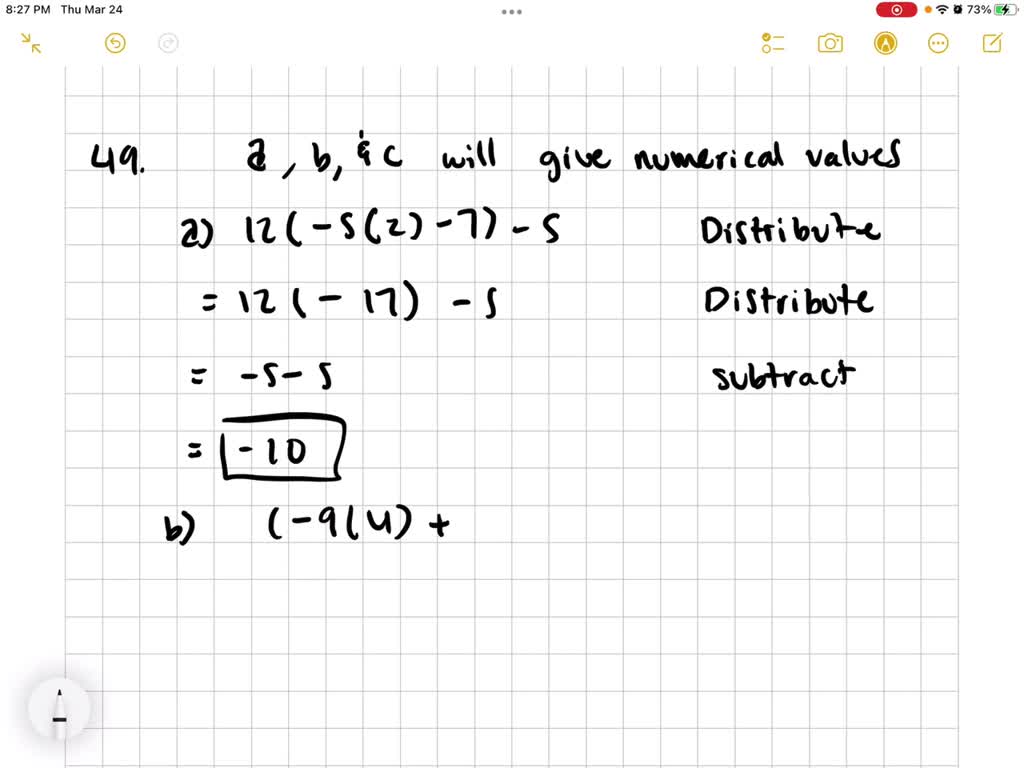 8:27 PM Thu Mar 24
73%
49. a, b, & c will give numerical values
a) 12(-5(2)-7)-5 Distribute
= 12(-17)-5 Distribute
= -5-5 subtract
= -10
b) (-9(4)+